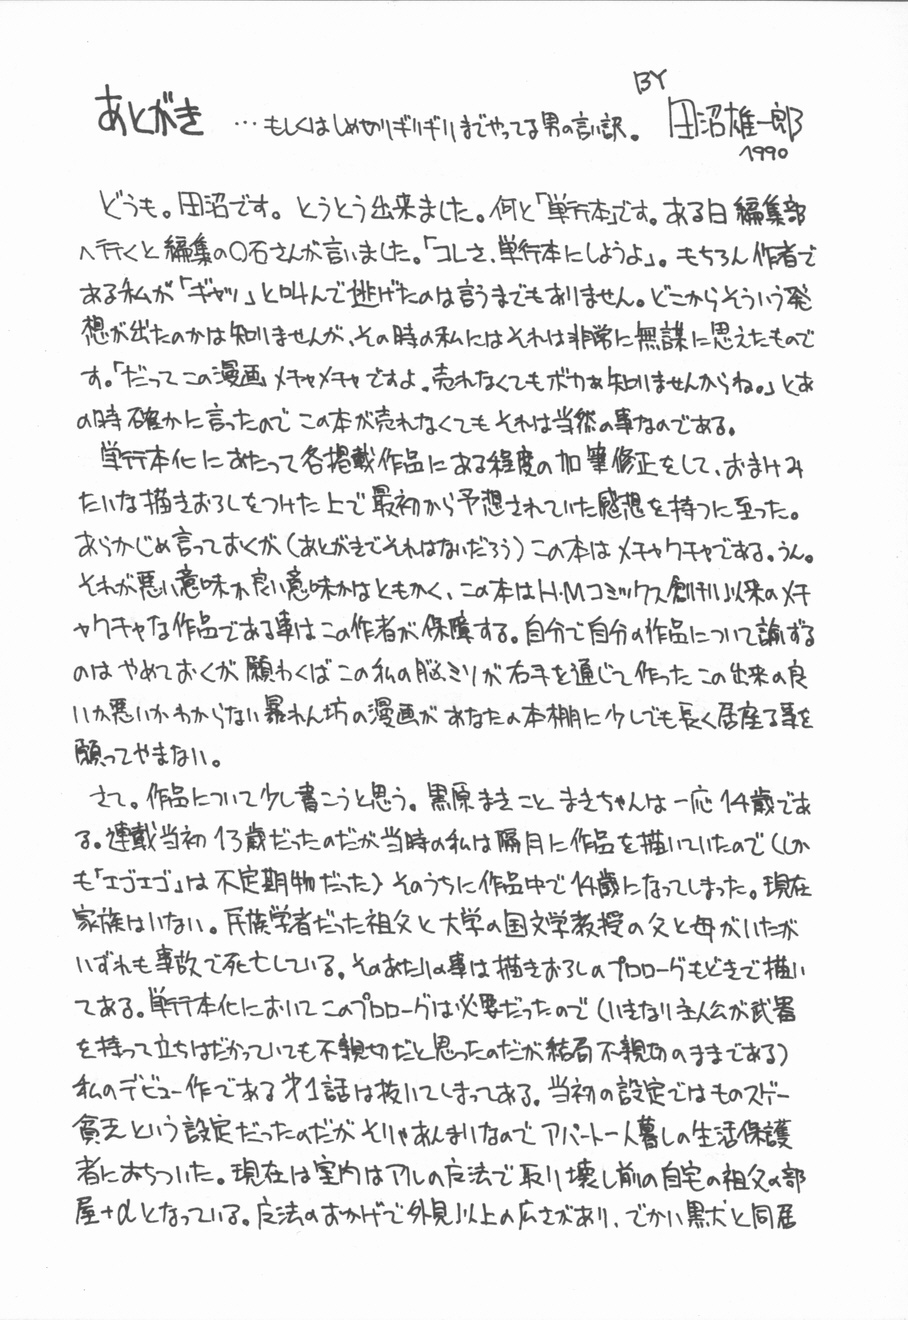 あとがき …もしくはしめきりギリギリまでやってる男の言い訳。 BY 田沼雄一郎
1990
どうも。田沼です。とうとう出来ました。何と「単行本」です。ある日編集部
へ行くと編集の〇石さんが言いました。「コレさ、単行本にしようよ」。もちろん作者で
ある私が「ギャッ」と叫んで逃げたのは言うまでもありません。どこからそういう発
想が出たのかは知りませんが、その時の私にはそれは非常に無謀に思えたもので
す。「だってこの漫画メチャメチャですよ。売れなくてもボカぁ知りませんからね。」とあ
の時確かに言ったのでこの本が売れなくてもそれは当然の事なのである。
単行本化にあたって各掲載作品にある程度の加筆修正をして、おまけみ
たいな描きおろしをつけた上で最初から予想されていた感想を持つに至った。
あらかじめ言っておくが(あとがきでそれはないだろう)この本はメチャクチャである。うん。
それが悪い意味か良い意味かはともかく、この本はH・Mコミックス創刊以来のメチ
ャクチャな作品である事はこの作者が保障する。自分で自分の作品について論ずる
のはやめておくが願わくばこの私の脳ミソが右手を通じて作ったこの出来の良
いか悪いかわからない暴れん坊の漫画があなたの本棚に少しでも長く居座る事を
願ってやまない。
さて。作品について少し書こうと思う。黒原まきことまきちゃんは一応14歳であ
る。連載当初13歳だったのだが当時の私は隔月に作品を描いていたので(しか
も「エゴエゴ」は不定期物だった)そのうちに作品中で14歳になってしまった。現在
家族はいない。民族学者だった祖父と大学の国文学教授の父と母がいたが
いずれも事故で死亡している。そのあたりの事は描きおろしのプロローグもどきで描い
てある。単行本化においてこのプロローグは必要だったので(いきなり主人公が武器
を持って立ちはだかっていても不親切だと思ったのだが結局不親切のままである)
私のデビュー作である才1話は抜いてしまってある。当初の設定ではものスゲー
貧乏という設定だったのだがそりゃあんまりなのでアパート一人暮しの生活保護
者におちついた。現在は室内はアルの魔法で取り壊し前の自宅の祖父の部
屋+αとなっている。魔法のおかげで外見以上の広さがあり、でかい黒犬と同居